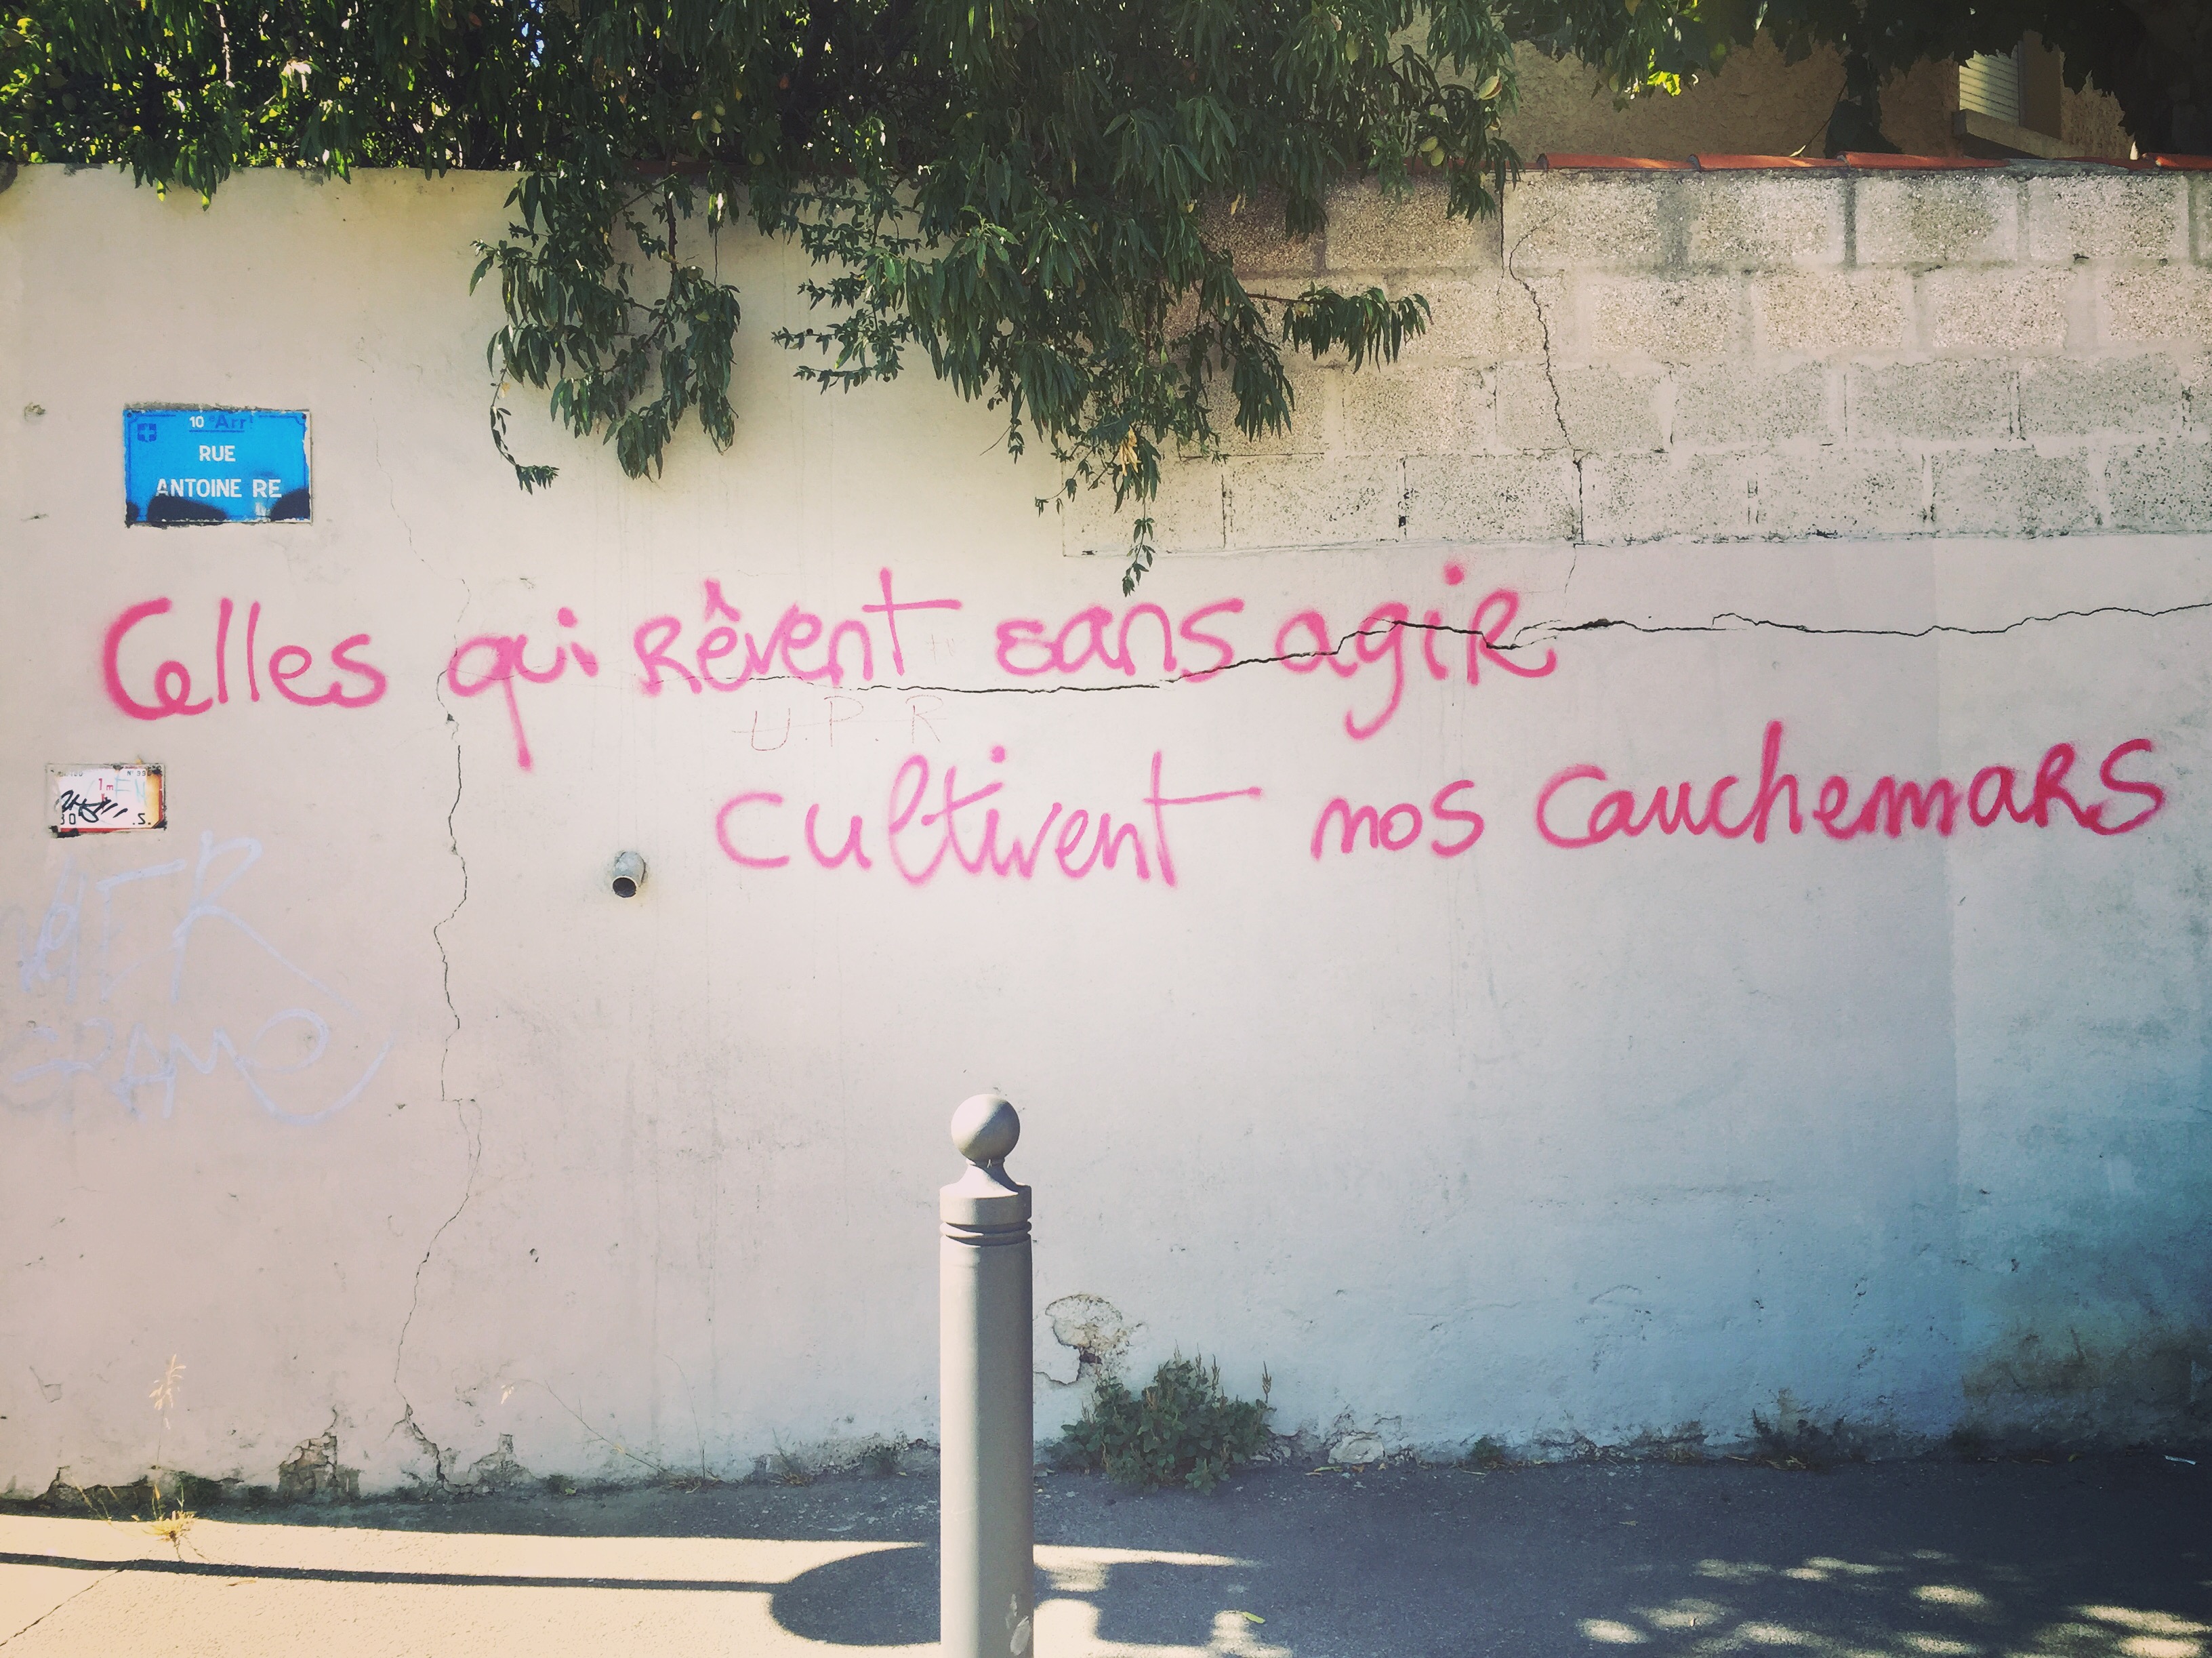 10ᵉ Arrᵗ
RUE
ANTOINE RE
Celles qui rêvent sans agir
U.P.R
cultivent nos cauchemars